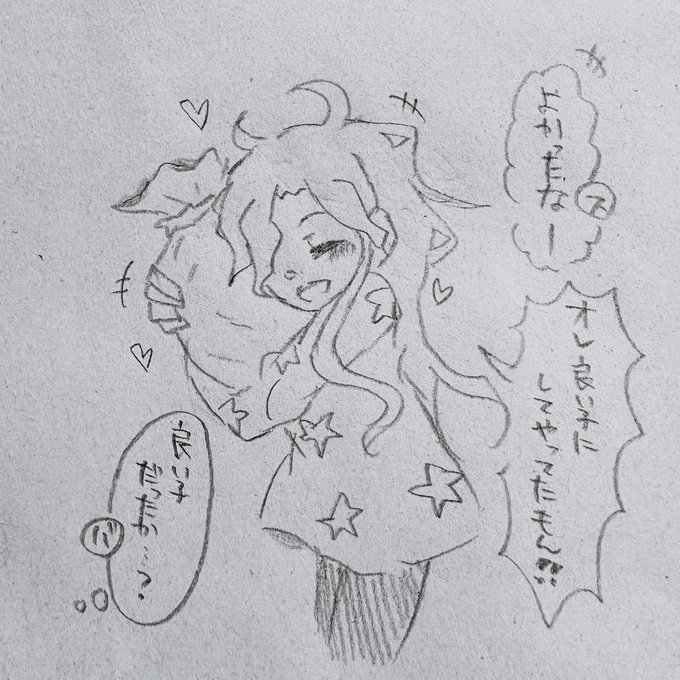 よかったなー
ス
オレ良い子に
してやってたもん!?
良い子
だったか…?
だ